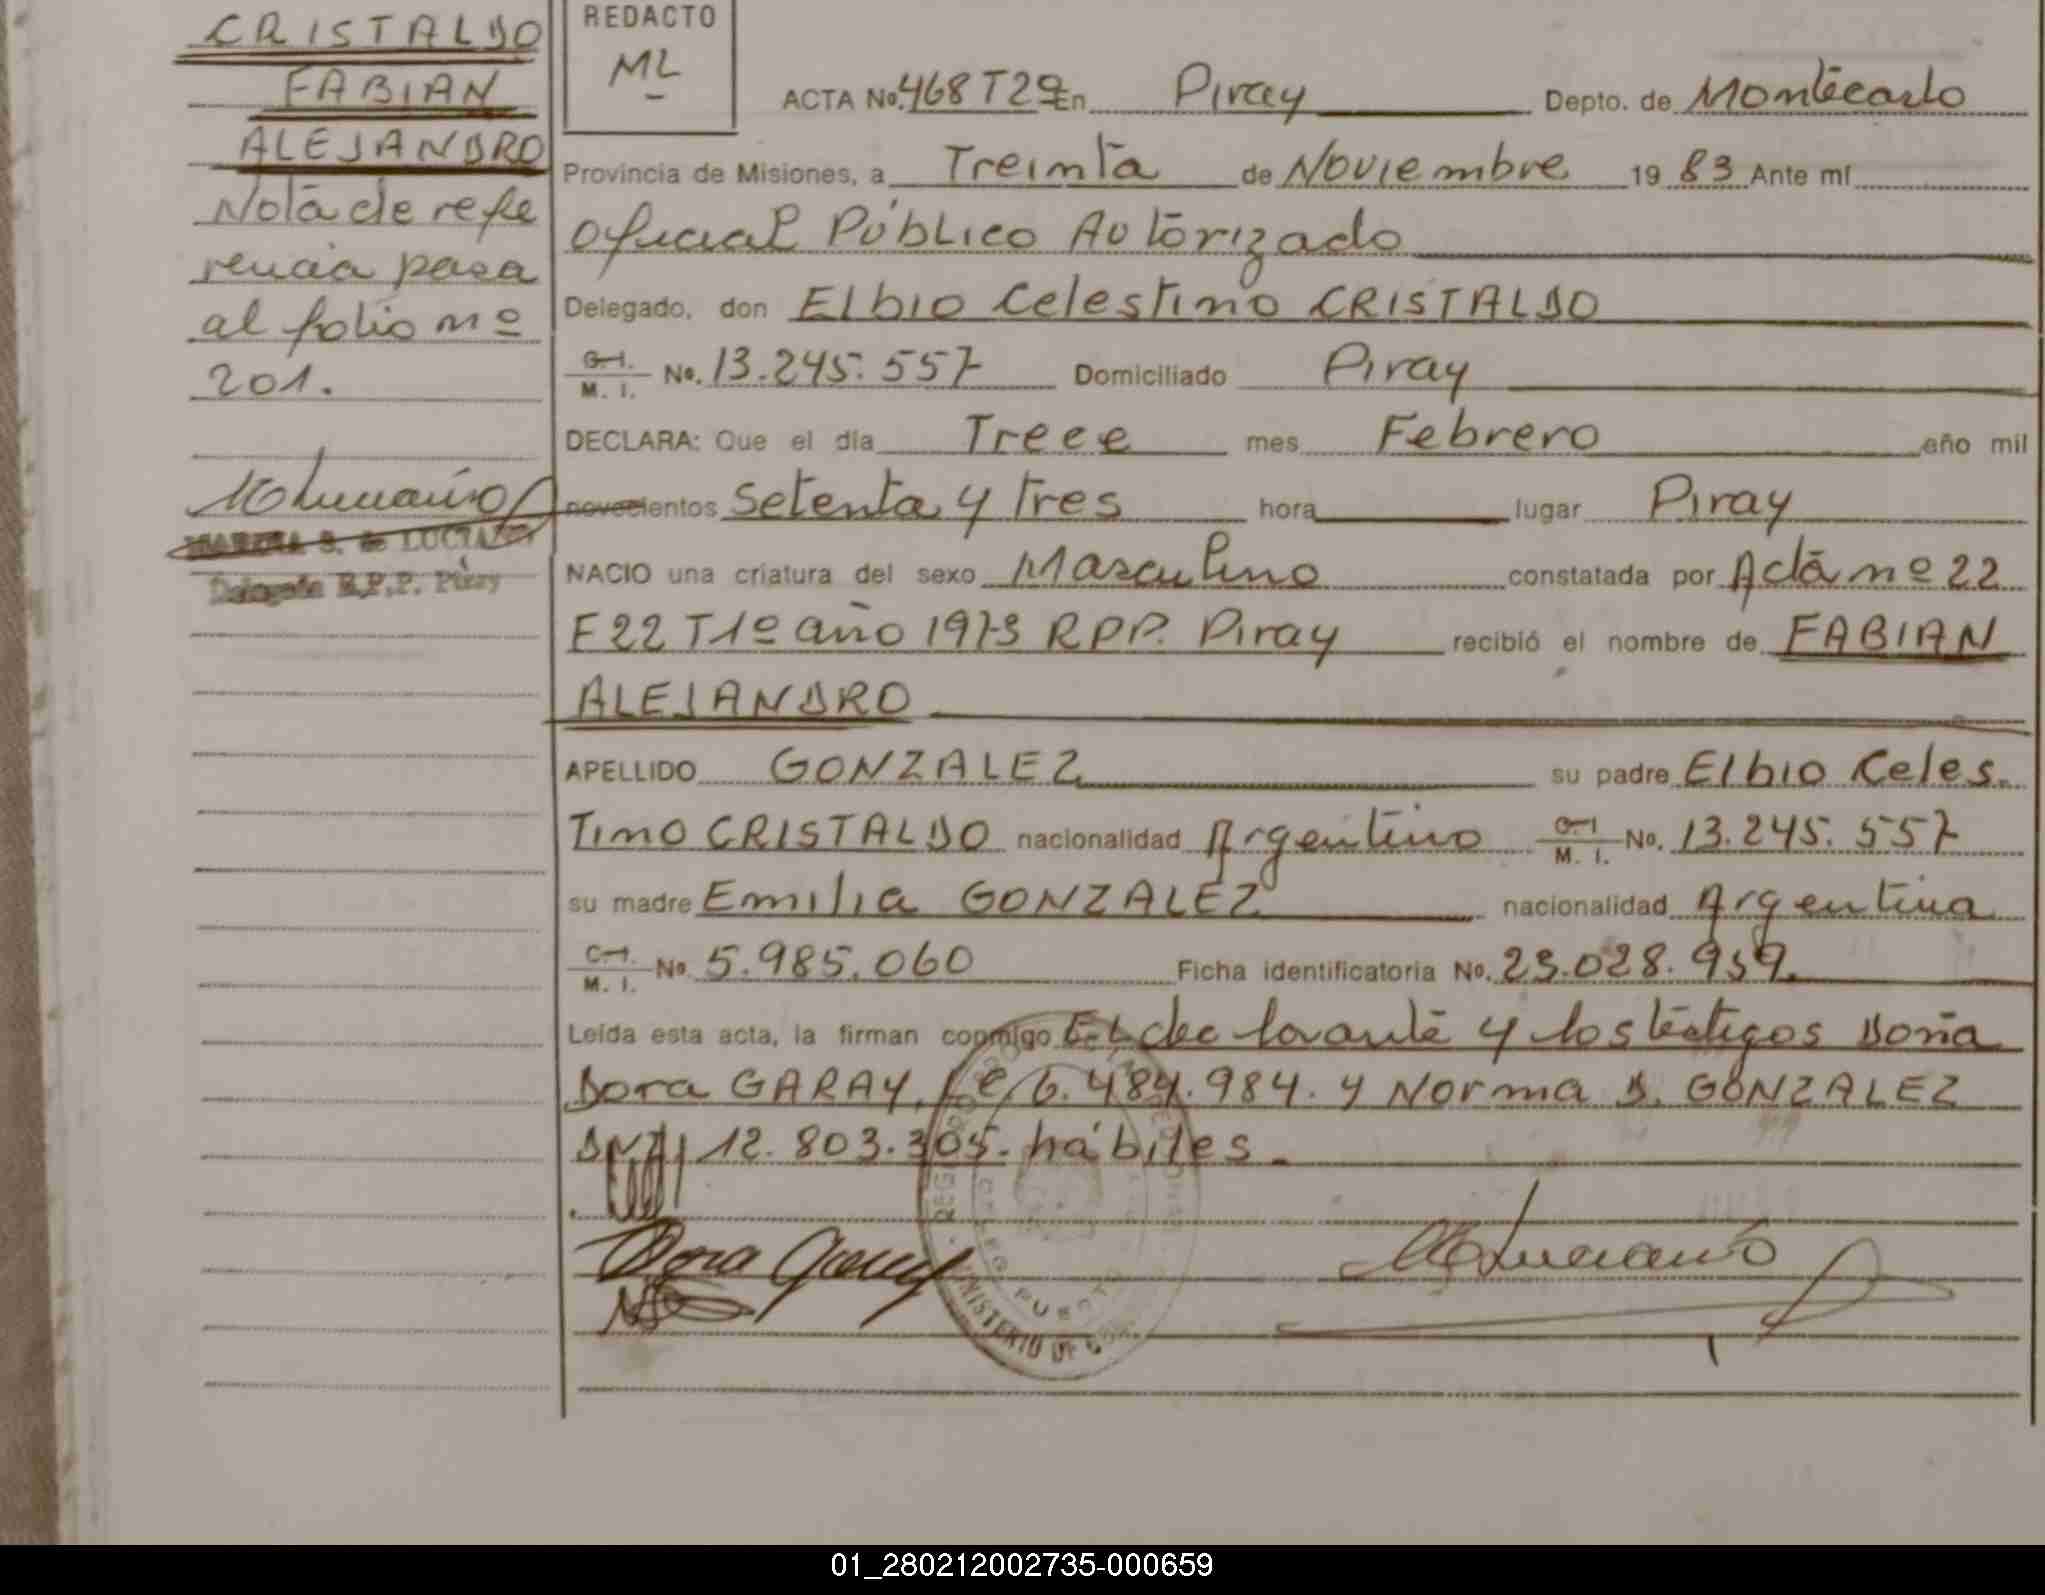 CRISTALDO
FABIAN
ALEJANDRO
Nota de refe
rencia pasa
al folio nº
201.
MARTHA S. de LUCIANO
Delegada R.P.P. Piray
REDACTO
ML
ACTA No. 468 T2º En Piray Depto. de Montecarlo
Provincia de Misiones, a Treinta de Noviembre 19 83 Ante mí
Oficial Público Autorizado
Delegado, don Elbio Celestino CRISTALDO
C. I. M. I. No. 13.245.557 Domiciliado Piray
DECLARA: Que el día Trece mes Febrero año mil
novecientos Setenta y Tres hora lugar Piray
NACIO una criatura del sexo Masculino constatada por Acta nº 22
F22 T1º año 1973 RPP. Piray recibió el nombre de FABIAN
ALEJANDRO
APELLIDO GONZALEZ su padre Elbio Celes.
Tino CRISTALDO nacionalidad Argentino C. I. M. I. No. 13.245.557
su madre Emilia GONZALEZ nacionalidad Argentina
C. I. M. I. No. 5.985.060 Ficha identificatoria No. 23.028.959.
Leída esta acta, la firman conmigo El declarante y los testigos Doña
Dora GARAY, Lc 6.484.984. y Norma D. GONZALEZ
DNI 12.803.305. hábiles.
Dora Garay
MINISTERIO DE
01_280212002735-000659